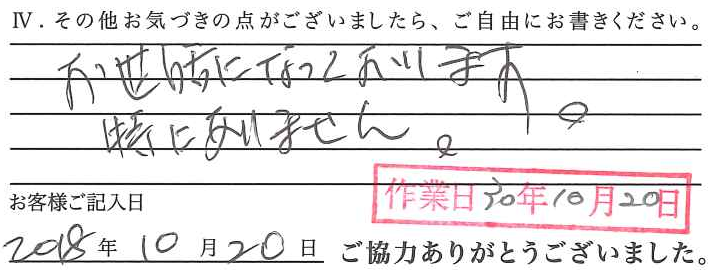 Ⅳ．その他お気づきの点がございましたら、ご自由にお書きください。
お世話になっております。
特にありません。
お客様ご記入日
作業日30年10月20日
2018年10月20日 ご協力ありがとうございました。